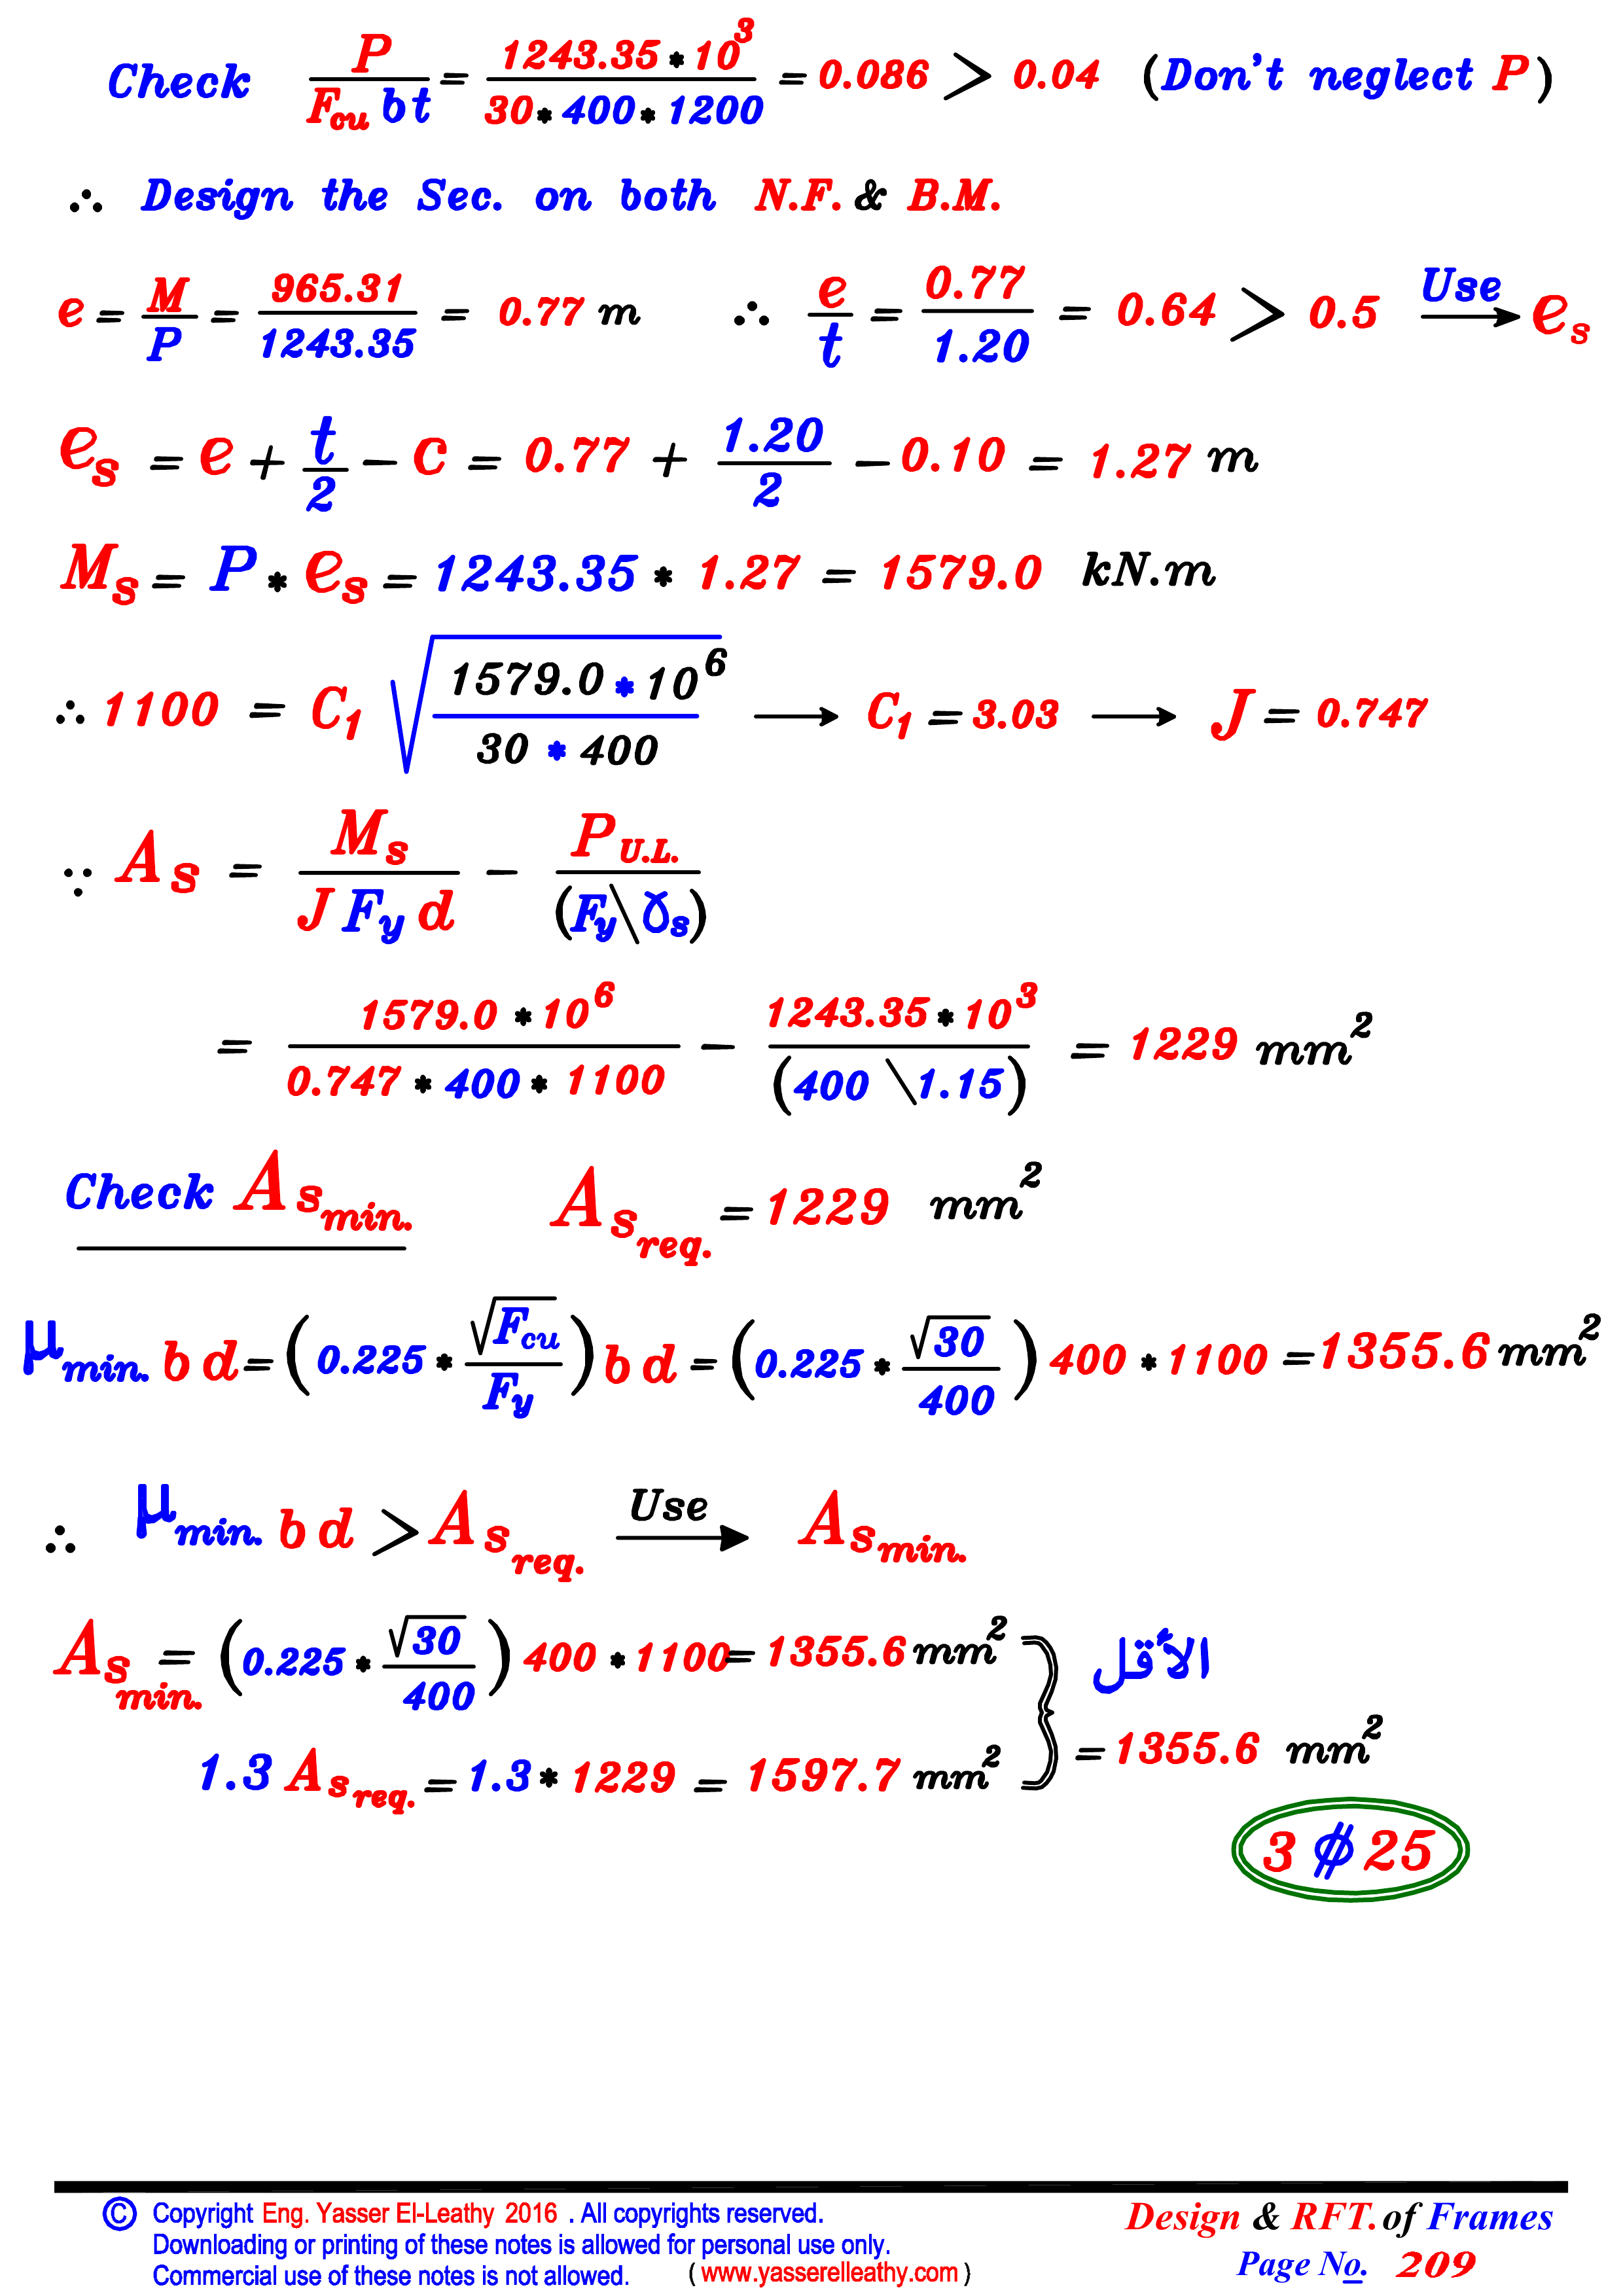 Check P / (Fcu b t) = 1243.35 * 10³ / (30 * 400 * 1200) = 0.086 > 0.04 (Don't neglect P)
∴ Design the Sec. on both N.F. & B.M.
e = M / P = 965.31 / 1243.35 = 0.77 m ∴ e / t = 0.77 / 1.20 = 0.64 > 0.5 Use → es
es = e + t / 2 - c = 0.77 + 1.20 / 2 - 0.10 = 1.27 m
Ms = P * es = 1243.35 * 1.27 = 1579.0 kN.m
∴ 1100 = C1 √(1579.0 * 10⁶ / (30 * 400)) → C1 = 3.03 → J = 0.747
∵ As = Ms / (J Fy d) - P U.L. / (Fy \ ɣs)
= 1579.0 * 10⁶ / (0.747 * 400 * 1100) - 1243.35 * 10³ / (400 \ 1.15) = 1229 mm²
Check As min. As req. = 1229 mm²
μ min. b d = (0.225 * √Fcu / Fy) b d = (0.225 * √30 / 400) 400 * 1100 = 1355.6 mm²
∴ μ min. b d > As req. Use → As min.
As min. = (0.225 * √30 / 400) 400 * 1100 = 1355.6 mm² } الأقل
1.3 As req. = 1.3 * 1229 = 1597.7 mm² } = 1355.6 mm²
3 ⌀ 25
© Copyright Eng. Yasser El-Leathy 2016 . All copyrights reserved.
Downloading or printing of these notes is allowed for personal use only.
Commercial use of these notes is not allowed. ( www.yasserelleathy.com )
Design & RFT. of Frames
Page No. 209